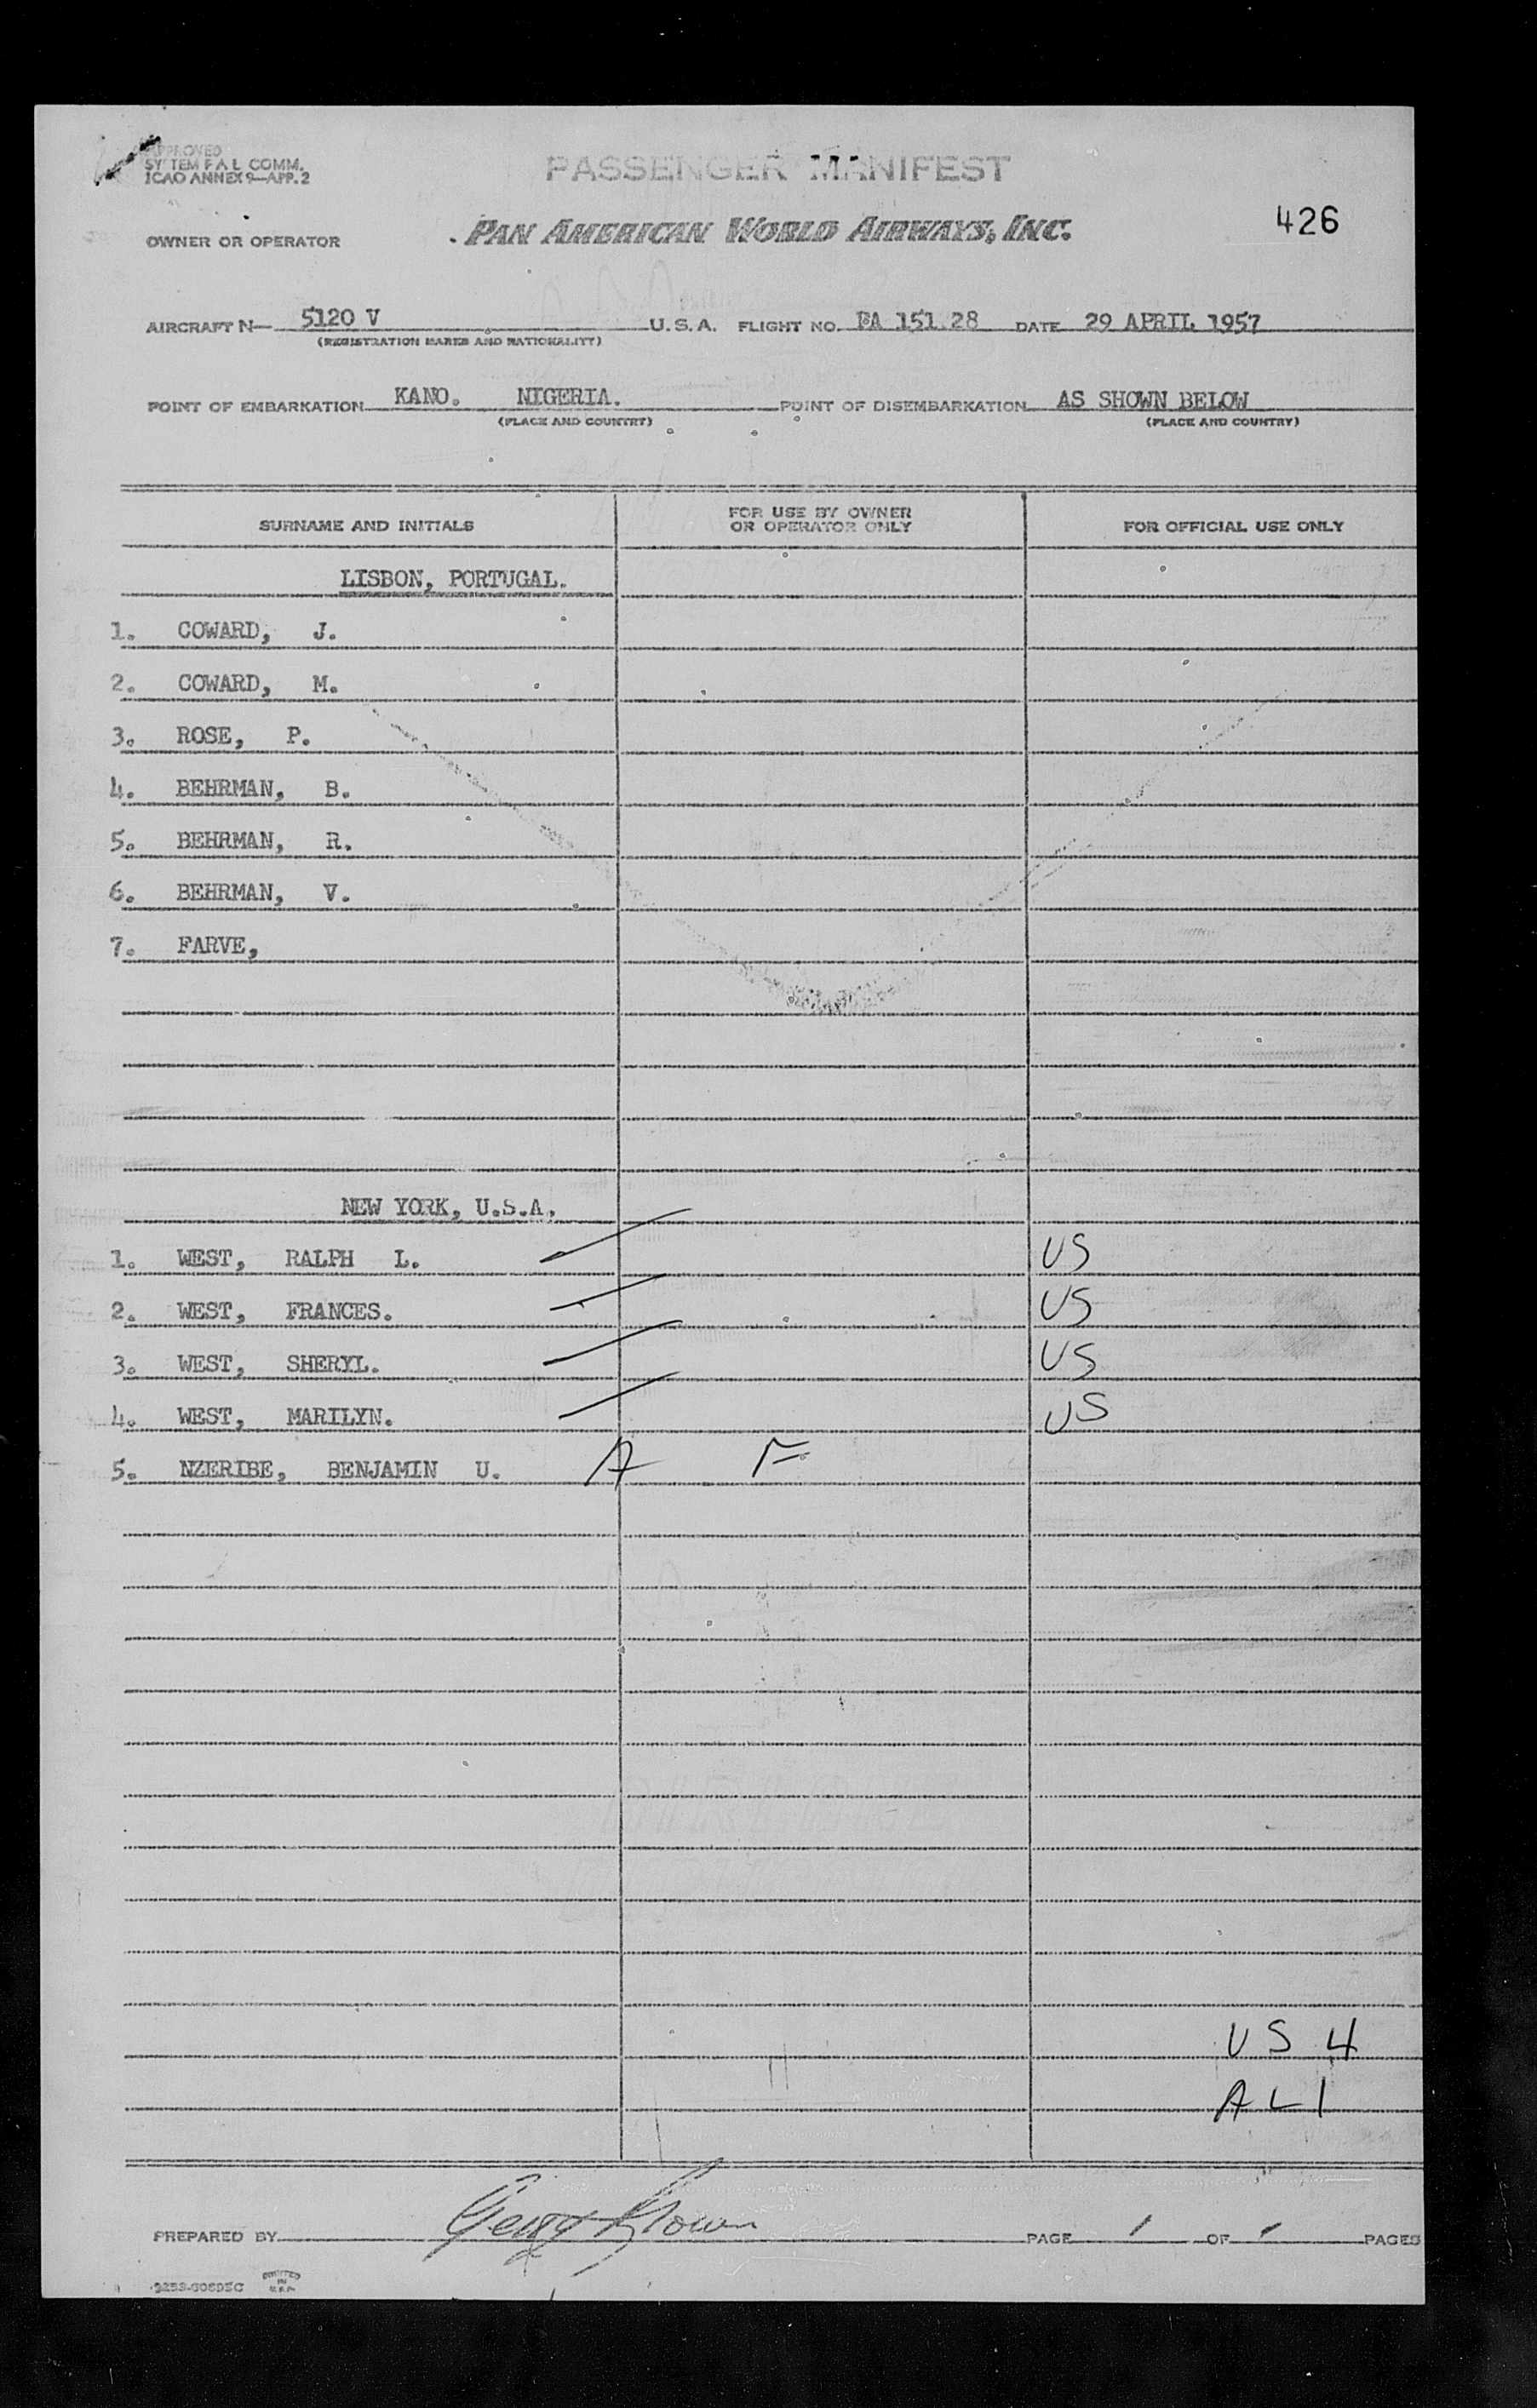 APPROVED
SYSTEM F A L COMM.
ICAO ANNEX 9—APP. 2
PASSENGER MANIFEST
OWNER OR OPERATOR
PAN AMERICAN WORLD AIRWAYS, INC.
426
AIRCRAFT N— 5120 V U. S. A. FLIGHT NO. PA 151.28 DATE 29 APRIL 1957
(REGISTRATION MARKS AND NATIONALITY)
POINT OF EMBARKATION KANO. NIGERIA. POINT OF DISEMBARKATION AS SHOWN BELOW
(PLACE AND COUNTRY) (PLACE AND COUNTRY)
SURNAME AND INITIALS
FOR USE BY OWNER
OR OPERATOR ONLY
FOR OFFICIAL USE ONLY
LISBON, PORTUGAL.
1. COWARD, J.
2. COWARD, M.
3. ROSE, P.
4. BEHRMAN, B.
5. BEHRMAN, R.
6. BEHRMAN, V.
7. FARVE,
NEW YORK, U.S.A.
1. WEST, RALPH L. US
2. WEST, FRANCES. US
3. WEST, SHERYL. US
4. WEST, MARILYN. US
5. NZERIBE, BENJAMIN U. A F
US 4
AL 1
PREPARED BY PAGE 1 OF 1 PAGES
PRINTED
IN
U.S.A.